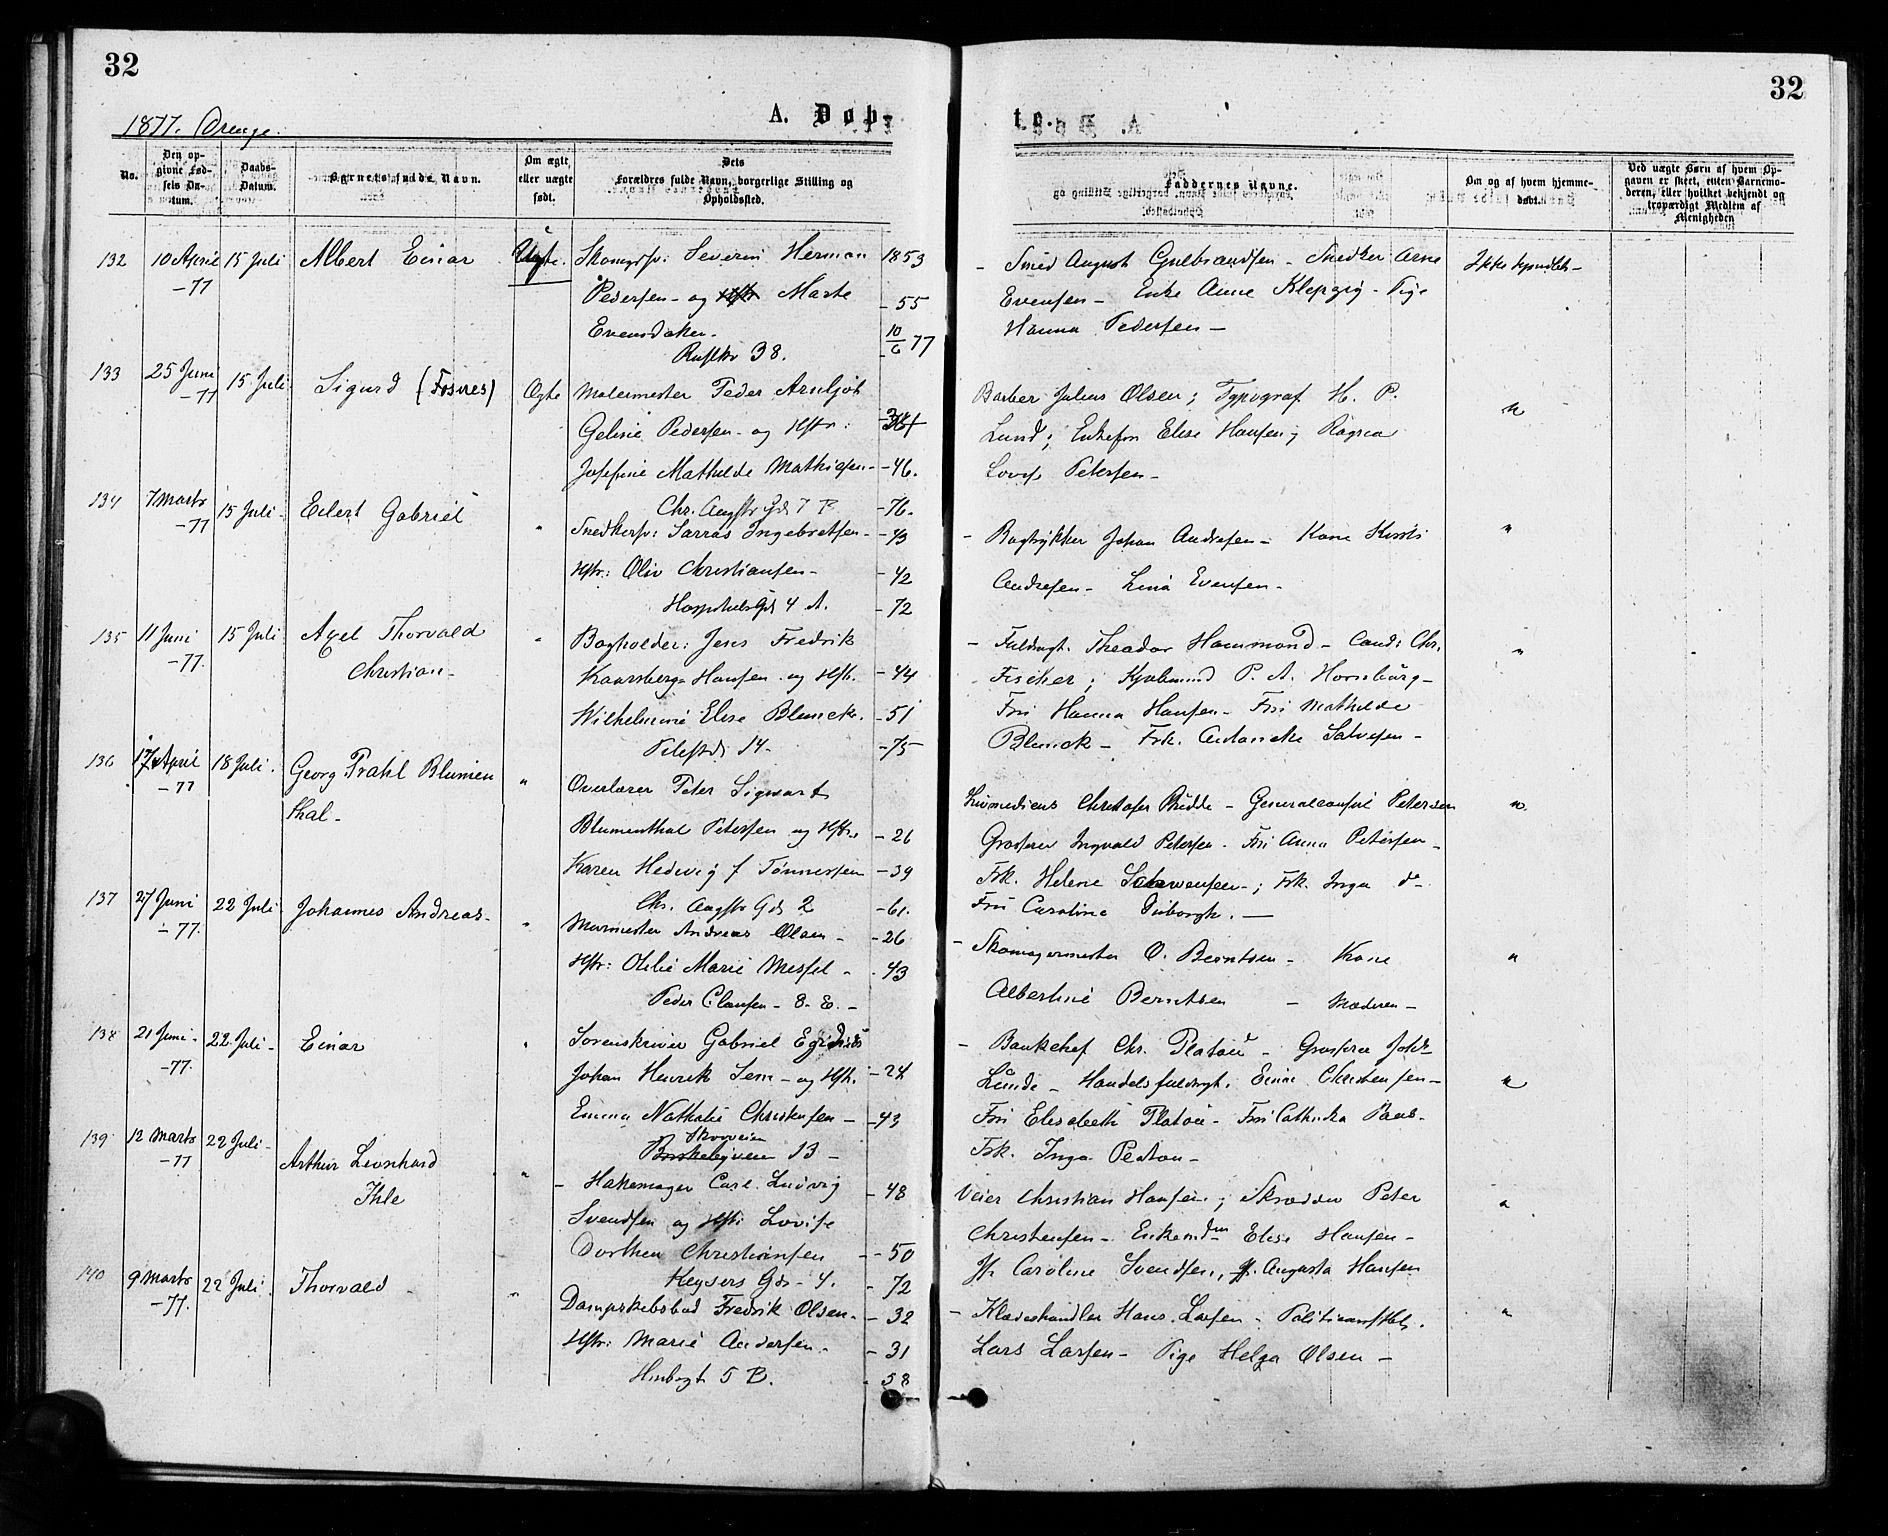 32
32
1877. Drenge.
A. Døb-
te.
No.
Den op-
givne Fød-
sels Da-
tum.
Daabs-
Datum.
Barnets fulde Navn.
Om ægte
eller uægte
født.
Dets
Forældres fulde Navn, borgerlige Stilling og
Opholdssted.
Faddernes Navne.
Om og af hvem hjemme-
døbt.
Ved uægte Børn af hvem Op-
gaven er skeet, enten Barnemo-
deren, eller hvilket bekjendt og
troværdigt Medlem af
Menigheden
132 10 April 15 Juli Albert Einar Uægte. Skomgrsv: Severin Herman 1853
-77
Pedersen - og Marte -55
Evensdatter. 10/6 77
38.
- Smed August Gulbrandsen - Snedker Arne
Evensen - Enke Anne Klepzig - Pige
Hanna Pedersen -
Ikke hjmdbt-
133 25 Juni 15 Juli Sigurd (Fosnes) Ægte Malermester Peder Arnljot
-77
Gelinie Pedersen - og Hstr:
Josefine Mathilde Mathisen - -46.
Chr. Augstr Gd 7 B -76.
Barber Julius Olsen; Typograf H. P.
Lund; Enkefru Elise Hansen; Ragna
Lovise Petersen -
"
134 7 Marts 15 Juli - Eilert Gabriel " Snedkersv: Sarras Ingebretsen - -43
-77
Hstr: Oliv Christiansen - -42
Hospitals Gd 4 A. -72
- Bogtrykker Johan Andresen - Kone Kirsti
Andresen - Lina Evensen -
"
135 11 Juni 15 Juli Axel Thorvald " Bogholder: Jens Fredrik
-77.
Christian -
Kaarsberg Hansen og Hstr. -44
Wilhelmine Elise Blunck. -51
Pilestr. 14- -75
- Fuldmgt. Theodor Hammond - Cand: Chr.
Fischer; Kjøbmand P. A. Hornburg -
Fru Hanna Hansen - Fru Mathilde
Blunck - Frk. Salvesen -
"
136 17 April 18 Juli. Georg Prahl Blumen " Overlærer Peter Sigwart
-77
thal -
Blumenthal Petersen og Hstr: -26
Karen Hedevig f Tønnessen -39
Chr. Augstr Gd 2 -61.
Livmedicus Christofer Budde - Generalconsul Petersen
Grosserer Ingvald Petersen - Fru Anna Petersen -
Frk. Helene ; Frk. Inga do-
Fru Caroline . -
"
137 27 Juni 22 Juli Johannes Andreas - " Murmester Andreas Olsen - -26
-77.
Hstr: Otilie Marie - -43
Peder Clausen - 8. E. -
- Skomagermester O. Berntsen - Kone
Albertine Berntsen - Moderen -
"
138 21 Juni - 22 Juli - Einar " Sorenskriver Gabriel Egidius
-77.
Johan Henrik Sem - og Hstr. -24
Emma Nathalie Christensen - -43
Skovveien
13 -
- Bankchef Chr. Platou - Grosserer
Lunde - Handelsfuldmgt. Einar Christensen -
Fru Elisabeth Platou - Fru Cathinka Paus -
Frk. Inga Platou -
"
139 12 Marts 22 Juli -
-77
Arthur Leonhard
Ihle
"
- Hakemager Carl Ludvig -48
Svendsen og Hstr: Lovise
Dorthea Christiansen - -50
Keysers Gd - 4. -72
Veier Christian Hansen; Skrædder Peter
Christensen - Enkemdm Elise Hansen -
Jfr Caroline Svendsen, Jfr. Augusta Hansen
"
140 9 Marts 22 Juli. Thorvald " Dampskibsbud Fredrik Olsen - -32
-77.
Hstr: Marie Andersen - -31
5 B. -58
- Klædeshandler Hans Larsen - Politiconstbl.
Lars Larsen - Pige Helga Olsen -
"